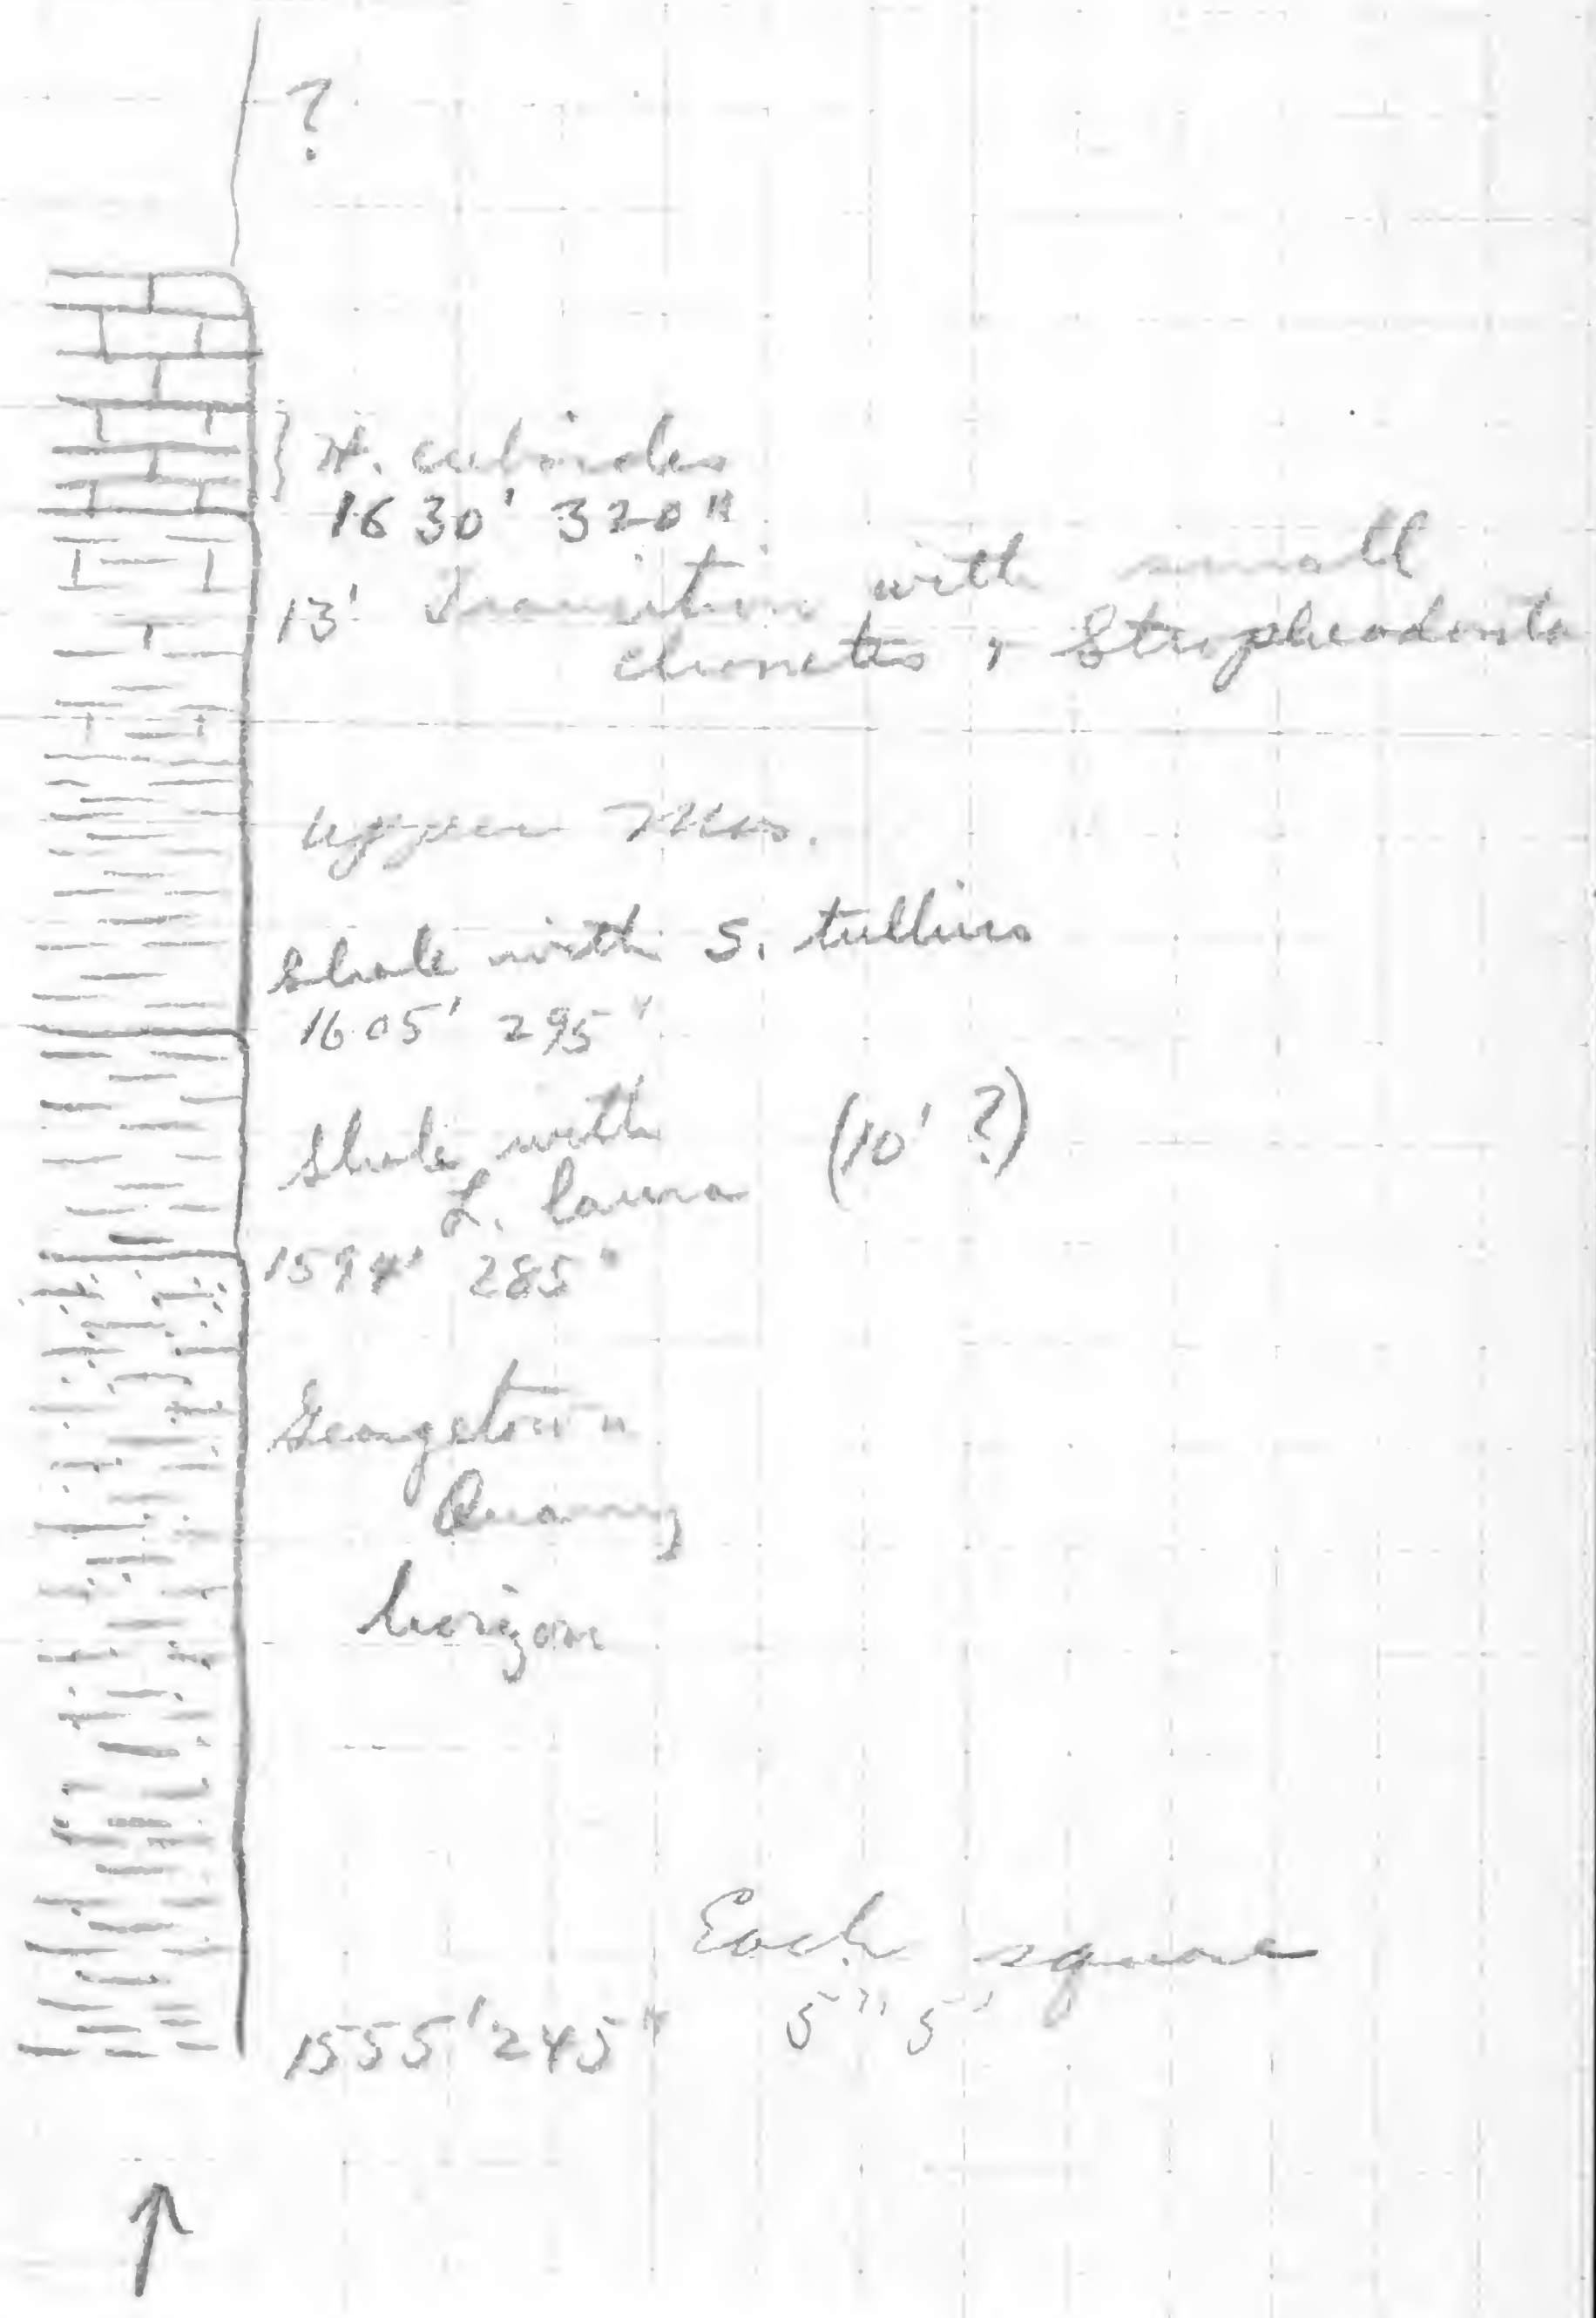 ?
H. cuboides
1630' 320"
13' Transition with small
chonetes & Stropheodonta
upper Mos.
Shale with S. tullius
1605' 295"
Shale with (10' ?)
L. laura
1594' 285"
Georgetown
Quarry
horizon
Each square
5" 5'
1555' 245"